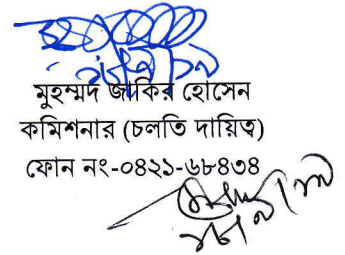 মুহম্মদ জাকির হোসেন
কমিশনার (চলতি দায়িত্ব)
ফোন নং-০৪২১-৬৮৪৩৪